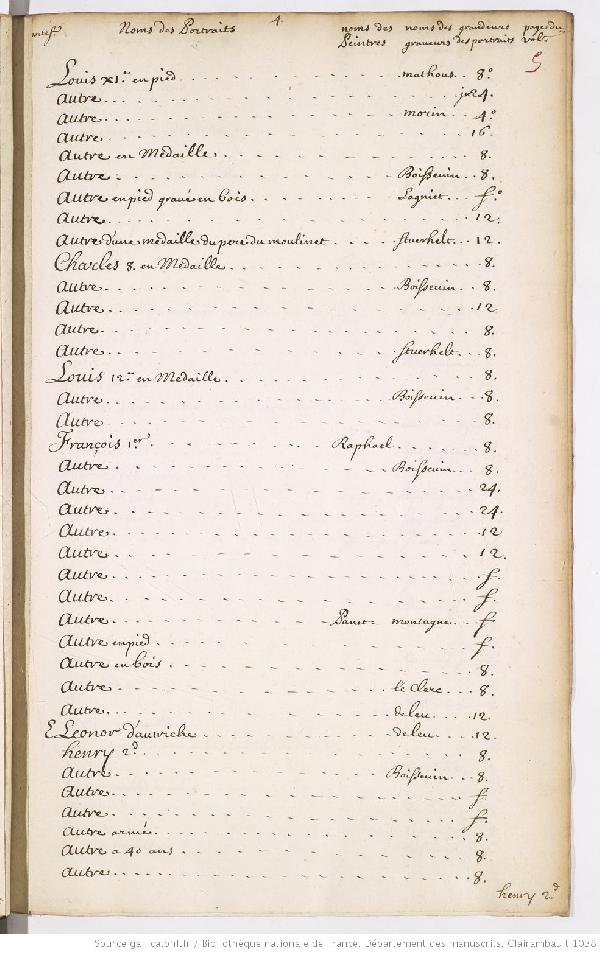 4.
Noms des Portraits noms des noms des grandeurs pages du
Peintres graveurs des portraits vol.
5
Louis XI.e en pied mathous 8.o
Autre in 24.
Autre morin 4.o
Autre 16.
Autre en Medaille 8.
Autre Boisseuin 8.
Autre en pied gravé en bois Lagniet f.o
Autre 12.
Autre d'une medaille du pere du moulinet stuerhelt 12.
Charles 8. en Medaille 8.
Autre Boisseuin 8.
Autre 12
Autre 8.
Autre stuerhelt 8.
Louis 12.me en Medaille 8.
Autre Boisseuin 8.
Autre 8.
François 1.er Raphael 8.
Autre Boisseuin 8.
Autre 24.
Autre 24.
Autre 12
Autre 12.
Autre f.
Autre f.
Autre montagne f.
Autre en pied f.
Autre en bois 8.
Autre le Clerc 8.
Autre deleu 12.
E. Leonor d'autriche deleu 12.
henry 2.d 8.
Autre Boisseuin 8.
Autre f.
Autre f.
Autre armé 8.
Autre a 40 ans 8.
Autre 8.
henry 2.d
Source gallica.bnf.fr / Bibliothèque nationale de France. Département des manuscrits. Clairambault 1038